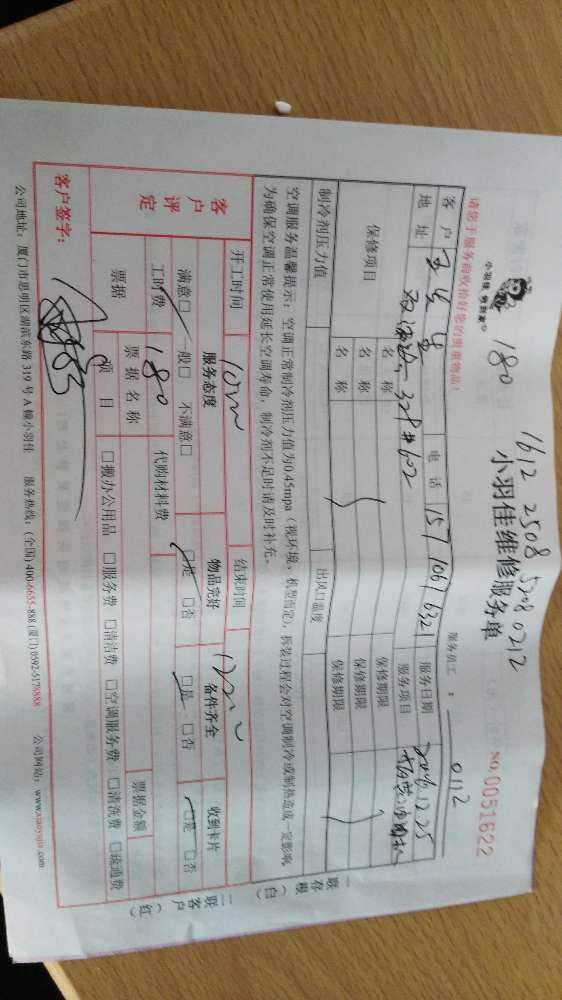 请您于服务前收检好您的贵重物品！
小羽佳 到家
180
1612 2508 5280 0212
小羽佳维修服务单
服务员工： 0112
NO. 0051622
客户 电话 157 1061 6321 服务日期 2016.12.25
地址 328#602 服务项目
保修项目 名称 保修期限
名称 保修期限
名称 保修期限
制冷剂压力值 出风口温度
空调服务温馨提示：空调正常制冷剂压力值为0.45mpa（视环境、机型而定），拆装过程会对空调制冷或制热造成一定影响，
为确保空调正常使用延长空调寿命，制冷剂不足时请及时补充。
客户评定
开工时间 结束时间
服务态度 物品完好 备件齐全 收到卡片
满意□ 一般□ 不满意□ □是 □否 □是 □否 □是 □否
工时费 180 代购材料费
票据 票据名称 票据金额
项目 □搬办公用品 □服务费 □清洁费 □空调服务费 □清洗费 □疏通费
客户签字：
公司地址：厦门市思明区湖滨东路 319 号 A 幢小羽佳 服务热线：(全国)400-6655-888 (厦门) 0592-5178888 公司网站：www.xiaoyujia.com
一联存根（白）
二联客户（红）